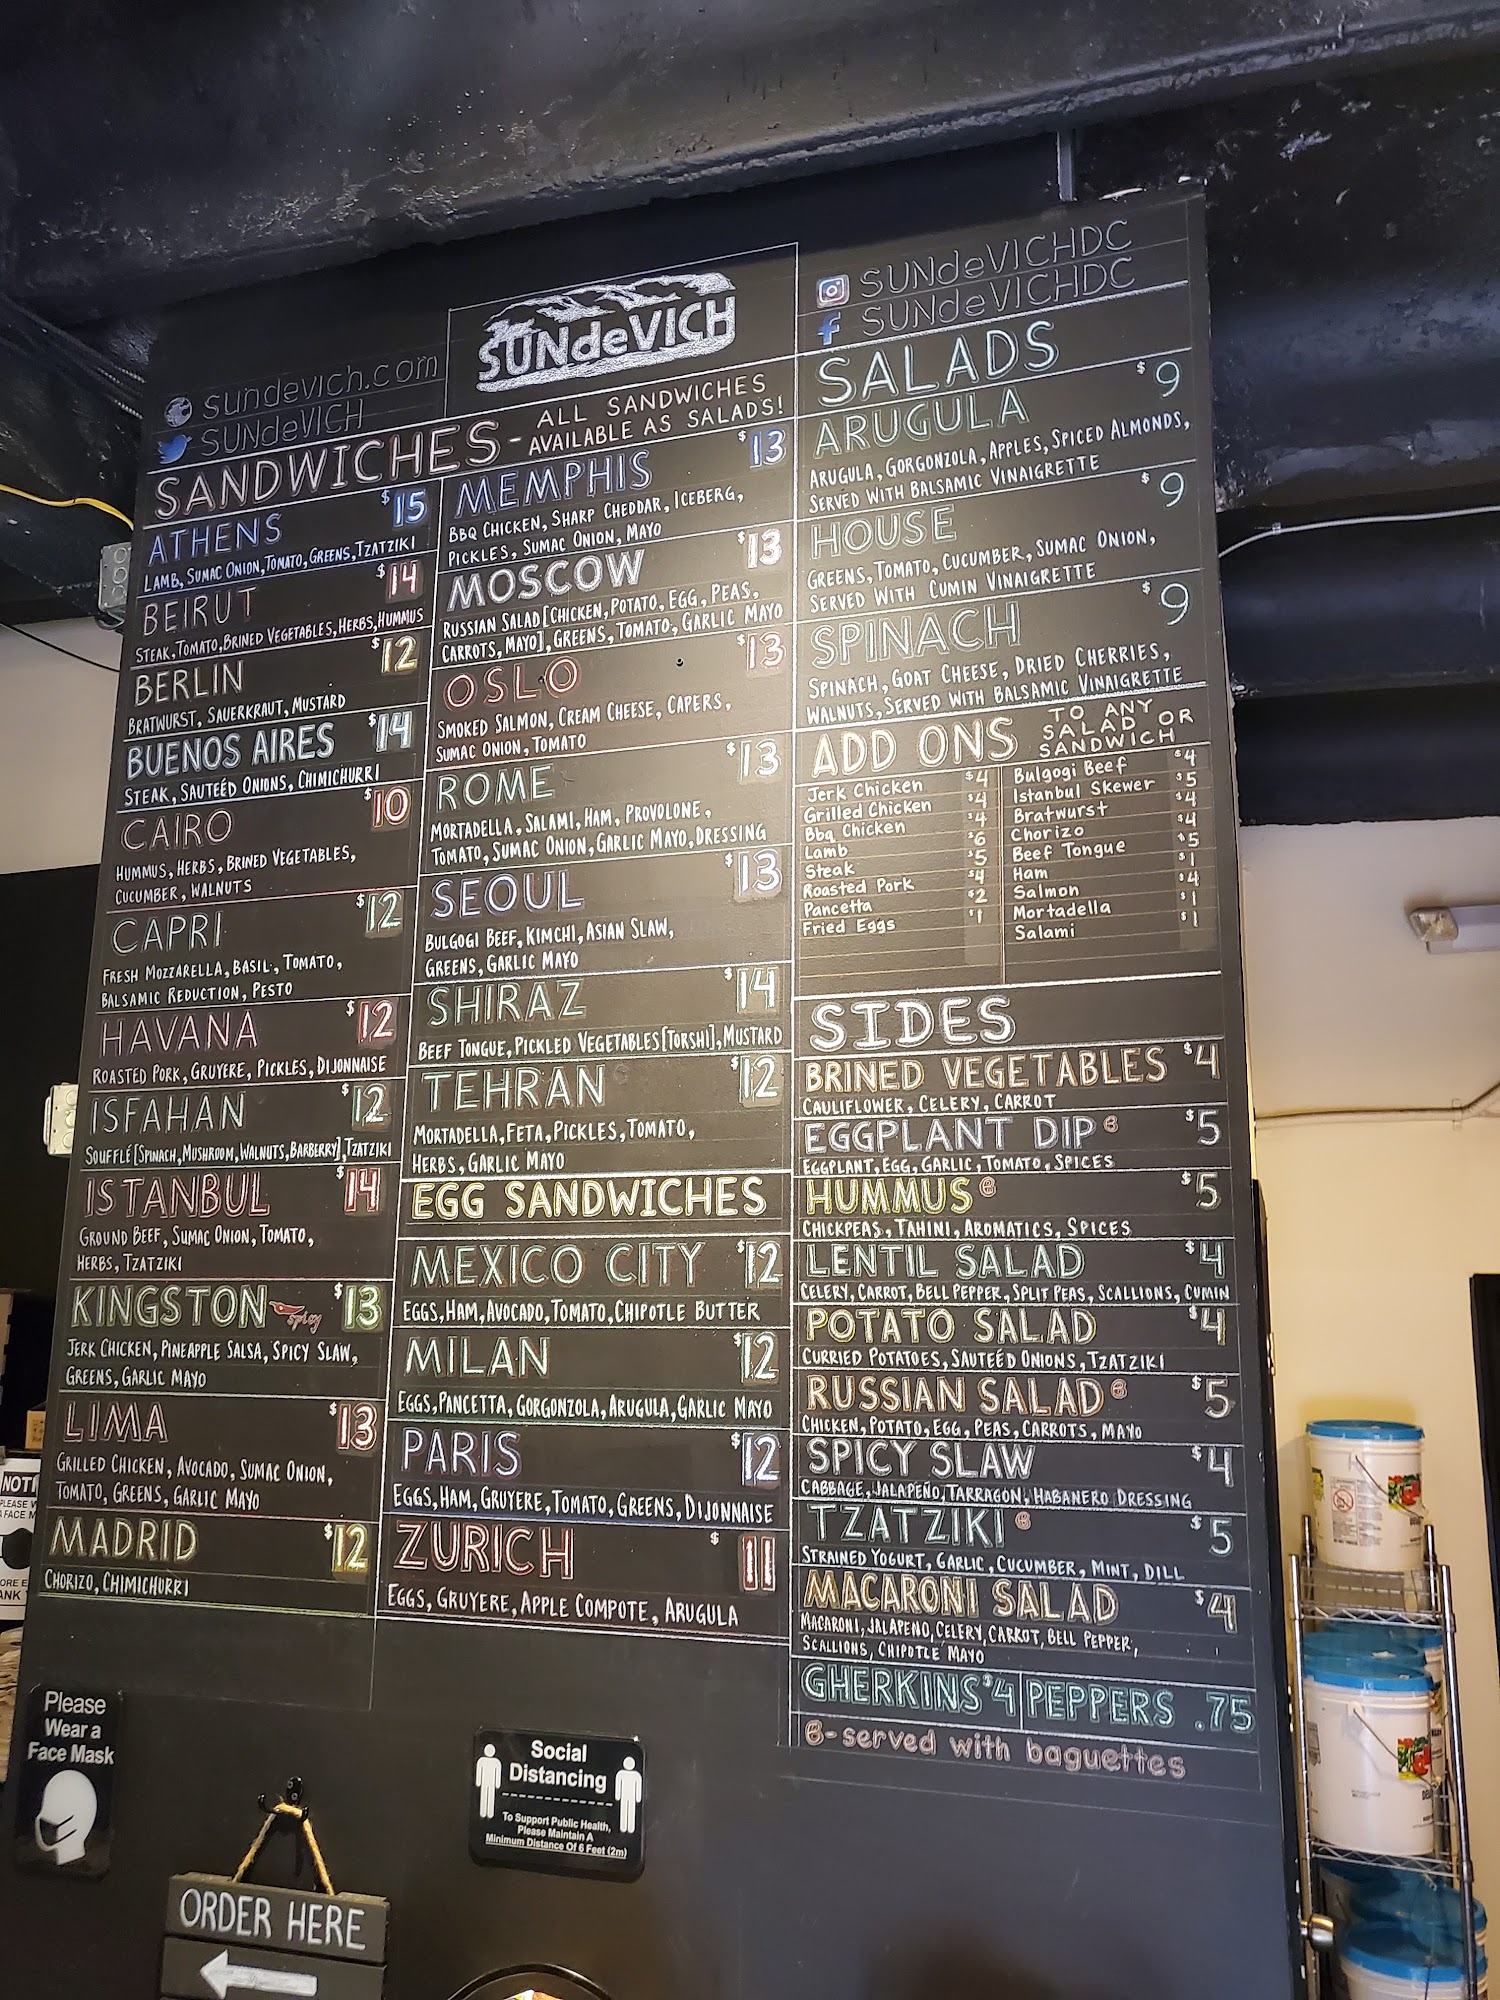 sundevich.com
SUNdeVICH
SUNdeVICH
SUNdeVICHDC
SUNdeVICHDC
SANDWICHES - ALL SANDWICHES
AVAILABLE AS SALADS!
ATHENS $15
LAMB, SUMAC ONION, TOMATO, GREENS, TZATZIKI
BEIRUT $14
STEAK, TOMATO, BRINED VEGETABLES, HERBS, HUMMUS
BERLIN $12
BRATWURST, SAUERKRAUT, MUSTARD
BUENOS AIRES $14
STEAK, SAUTEÉD ONIONS, CHIMICHURRI
CAIRO $10
HUMMUS, HERBS, BRINED VEGETABLES,
CUCUMBER, WALNUTS
CAPRI $12
FRESH MOZZARELLA, BASIL, TOMATO,
BALSAMIC REDUCTION, PESTO
HAVANA $12
ROASTED PORK, GRUYERE, PICKLES, DIJONNAISE
ISFAHAN $12
SOUFFLÉ [SPINACH, MUSHROOM, WALNUTS, BARBERRY], TZATZIKI
ISTANBUL $14
GROUND BEEF, SUMAC ONION, TOMATO,
HERBS, TZATZIKI
KINGSTON spicy $13
JERK CHICKEN, PINEAPPLE SALSA, SPICY SLAW,
GREENS, GARLIC MAYO
LIMA $13
GRILLED CHICKEN, AVOCADO, SUMAC ONION,
TOMATO, GREENS, GARLIC MAYO
MADRID $12
CHORIZO, CHIMICHURRI
MEMPHIS $13
BBQ CHICKEN, SHARP CHEDDAR, ICEBERG,
PICKLES, SUMAC ONION, MAYO
MOSCOW $13
RUSSIAN SALAD [CHICKEN, POTATO, EGG, PEAS,
CARROTS, MAYO], GREENS, TOMATO, GARLIC MAYO
OSLO $13
SMOKED SALMON, CREAM CHEESE, CAPERS,
SUMAC ONION, TOMATO
ROME $13
MORTADELLA, SALAMI, HAM, PROVOLONE,
TOMATO, SUMAC ONION, GARLIC MAYO, DRESSING
SEOUL $13
BULGOGI BEEF, KIMCHI, ASIAN SLAW,
GREENS, GARLIC MAYO
SHIRAZ $14
BEEF TONGUE, PICKLED VEGETABLES [TORSHI], MUSTARD
TEHRAN $12
MORTADELLA, FETA, PICKLES, TOMATO,
HERBS, GARLIC MAYO
EGG SANDWICHES
MEXICO CITY $12
EGGS, HAM, AVOCADO, TOMATO, CHIPOTLE BUTTER
MILAN $12
EGGS, PANCETTA, GORGONZOLA, ARUGULA, GARLIC MAYO
PARIS $12
EGGS, HAM, GRUYERE, TOMATO, GREENS, DIJONNAISE
ZURICH $11
EGGS, GRUYERE, APPLE COMPOTE, ARUGULA
SALADS
ARUGULA $9
ARUGULA, GORGONZOLA, APPLES, SPICED ALMONDS,
SERVED WITH BALSAMIC VINAIGRETTE
HOUSE $9
GREENS, TOMATO, CUCUMBER, SUMAC ONION,
SERVED WITH CUMIN VINAIGRETTE
SPINACH $9
SPINACH, GOAT CHEESE, DRIED CHERRIES,
WALNUTS, SERVED WITH BALSAMIC VINAIGRETTE
ADD ONS TO ANY
SALAD OR
SANDWICH
Jerk Chicken $4
Grilled Chicken $4
Bbq Chicken $4
Lamb $6
Steak $5
Roasted Pork $4
Pancetta $2
Fried Eggs $1
Bulgogi Beef $4
Istanbul Skewer $5
Bratwurst $4
Chorizo $4
Beef Tongue $5
Ham $1
Salmon $4
Mortadella $1
Salami $1
SIDES
BRINED VEGETABLES $4
CAULIFLOWER, CELERY, CARROT
EGGPLANT DIP B $5
EGGPLANT, EGG, GARLIC, TOMATO, SPICES
HUMMUS B $5
CHICKPEAS, TAHINI, AROMATICS, SPICES
LENTIL SALAD $4
CELERY, CARROT, BELL PEPPER, SPLIT PEAS, SCALLIONS, CUMIN
POTATO SALAD $4
CURRIED POTATOES, SAUTEÉD ONIONS, TZATZIKI
RUSSIAN SALAD B $5
CHICKEN, POTATO, EGG, PEAS, CARROTS, MAYO
SPICY SLAW $4
CABBAGE, JALAPEÑO, TARRAGON, HABANERO DRESSING
TZATZIKI B $5
STRAINED YOGURT, GARLIC, CUCUMBER, MINT, DILL
MACARONI SALAD $4
MACARONI, JALAPENO, CELERY, CARROT, BELL PEPPER,
SCALLIONS, CHIPOTLE MAYO
GHERKINS $4 PEPPERS .75
B-served with baguettes
Please
Wear a
Face Mask
Social
Distancing
To Support Public Health,
Please Maintain A
Minimum Distance Of 6 Feet (2m)
ORDER HERE